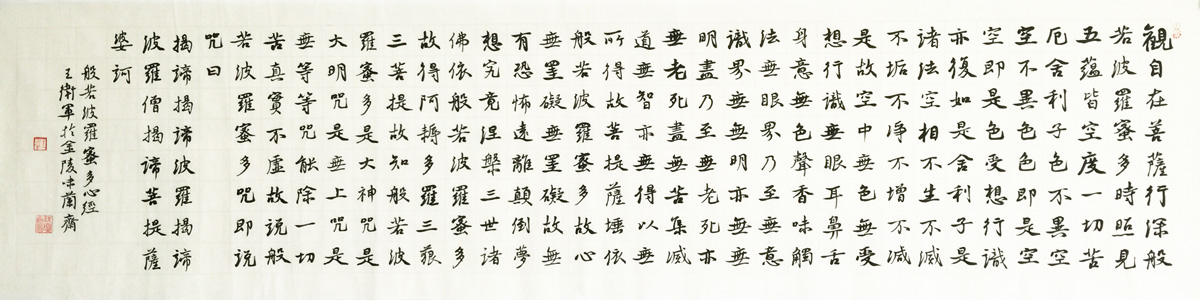 觀自在菩薩行深般
若波羅蜜多時照見
五蘊皆空度一切苦
厄舍利子色不異空
空不異色色即是空
空即是色受想行識
亦復如是舍利子是
諸法空相不生不滅
不垢不淨不增不減
是故空中無色無受
想行識無眼耳鼻舌
身意無色聲香味觸
法無眼界乃至無意
識界無無明亦無無
明盡乃至無老死亦
無老死盡無苦集滅
道無智亦無得以無
所得故菩提薩埵依
般若波羅蜜多故心
無罣礙無罣礙故無
有恐怖遠離顛倒夢
想究竟涅槃三世諸
佛依般若波羅蜜多
故得阿耨多羅三藐
三菩提故知般若波
羅蜜多是大神咒是
大明咒是無上咒是
無等等咒能除一切
苦真實不虛故説般
若波羅蜜多咒即説
咒曰
揭諦揭諦波羅揭諦
波羅僧揭諦菩提薩
婆訶
般若波羅蜜多心經
王衛軍於金陵未蘭齋